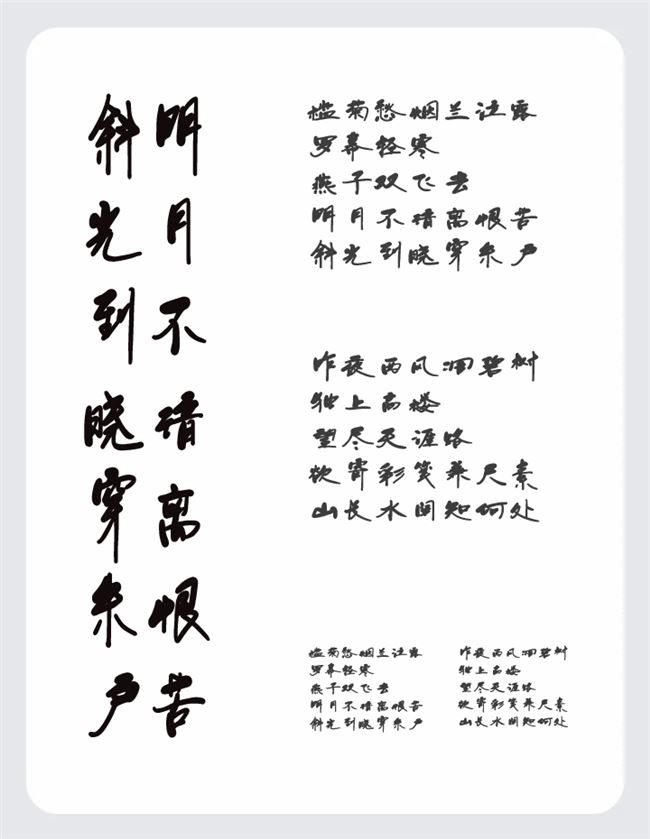 明月不谙离恨苦
斜光到晓穿朱户
槛菊愁烟兰泣露
罗幕轻寒
燕子双飞去
明月不谙离恨苦
斜光到晓穿朱户
昨夜西风凋碧树
独上高楼
望尽天涯路
欲寄彩笺兼尺素
山长水阔知何处
槛菊愁烟兰泣露
罗幕轻寒
燕子双飞去
明月不谙离恨苦
斜光到晓穿朱户
昨夜西风凋碧树
独上高楼
望尽天涯路
欲寄彩笺兼尺素
山长水阔知何处